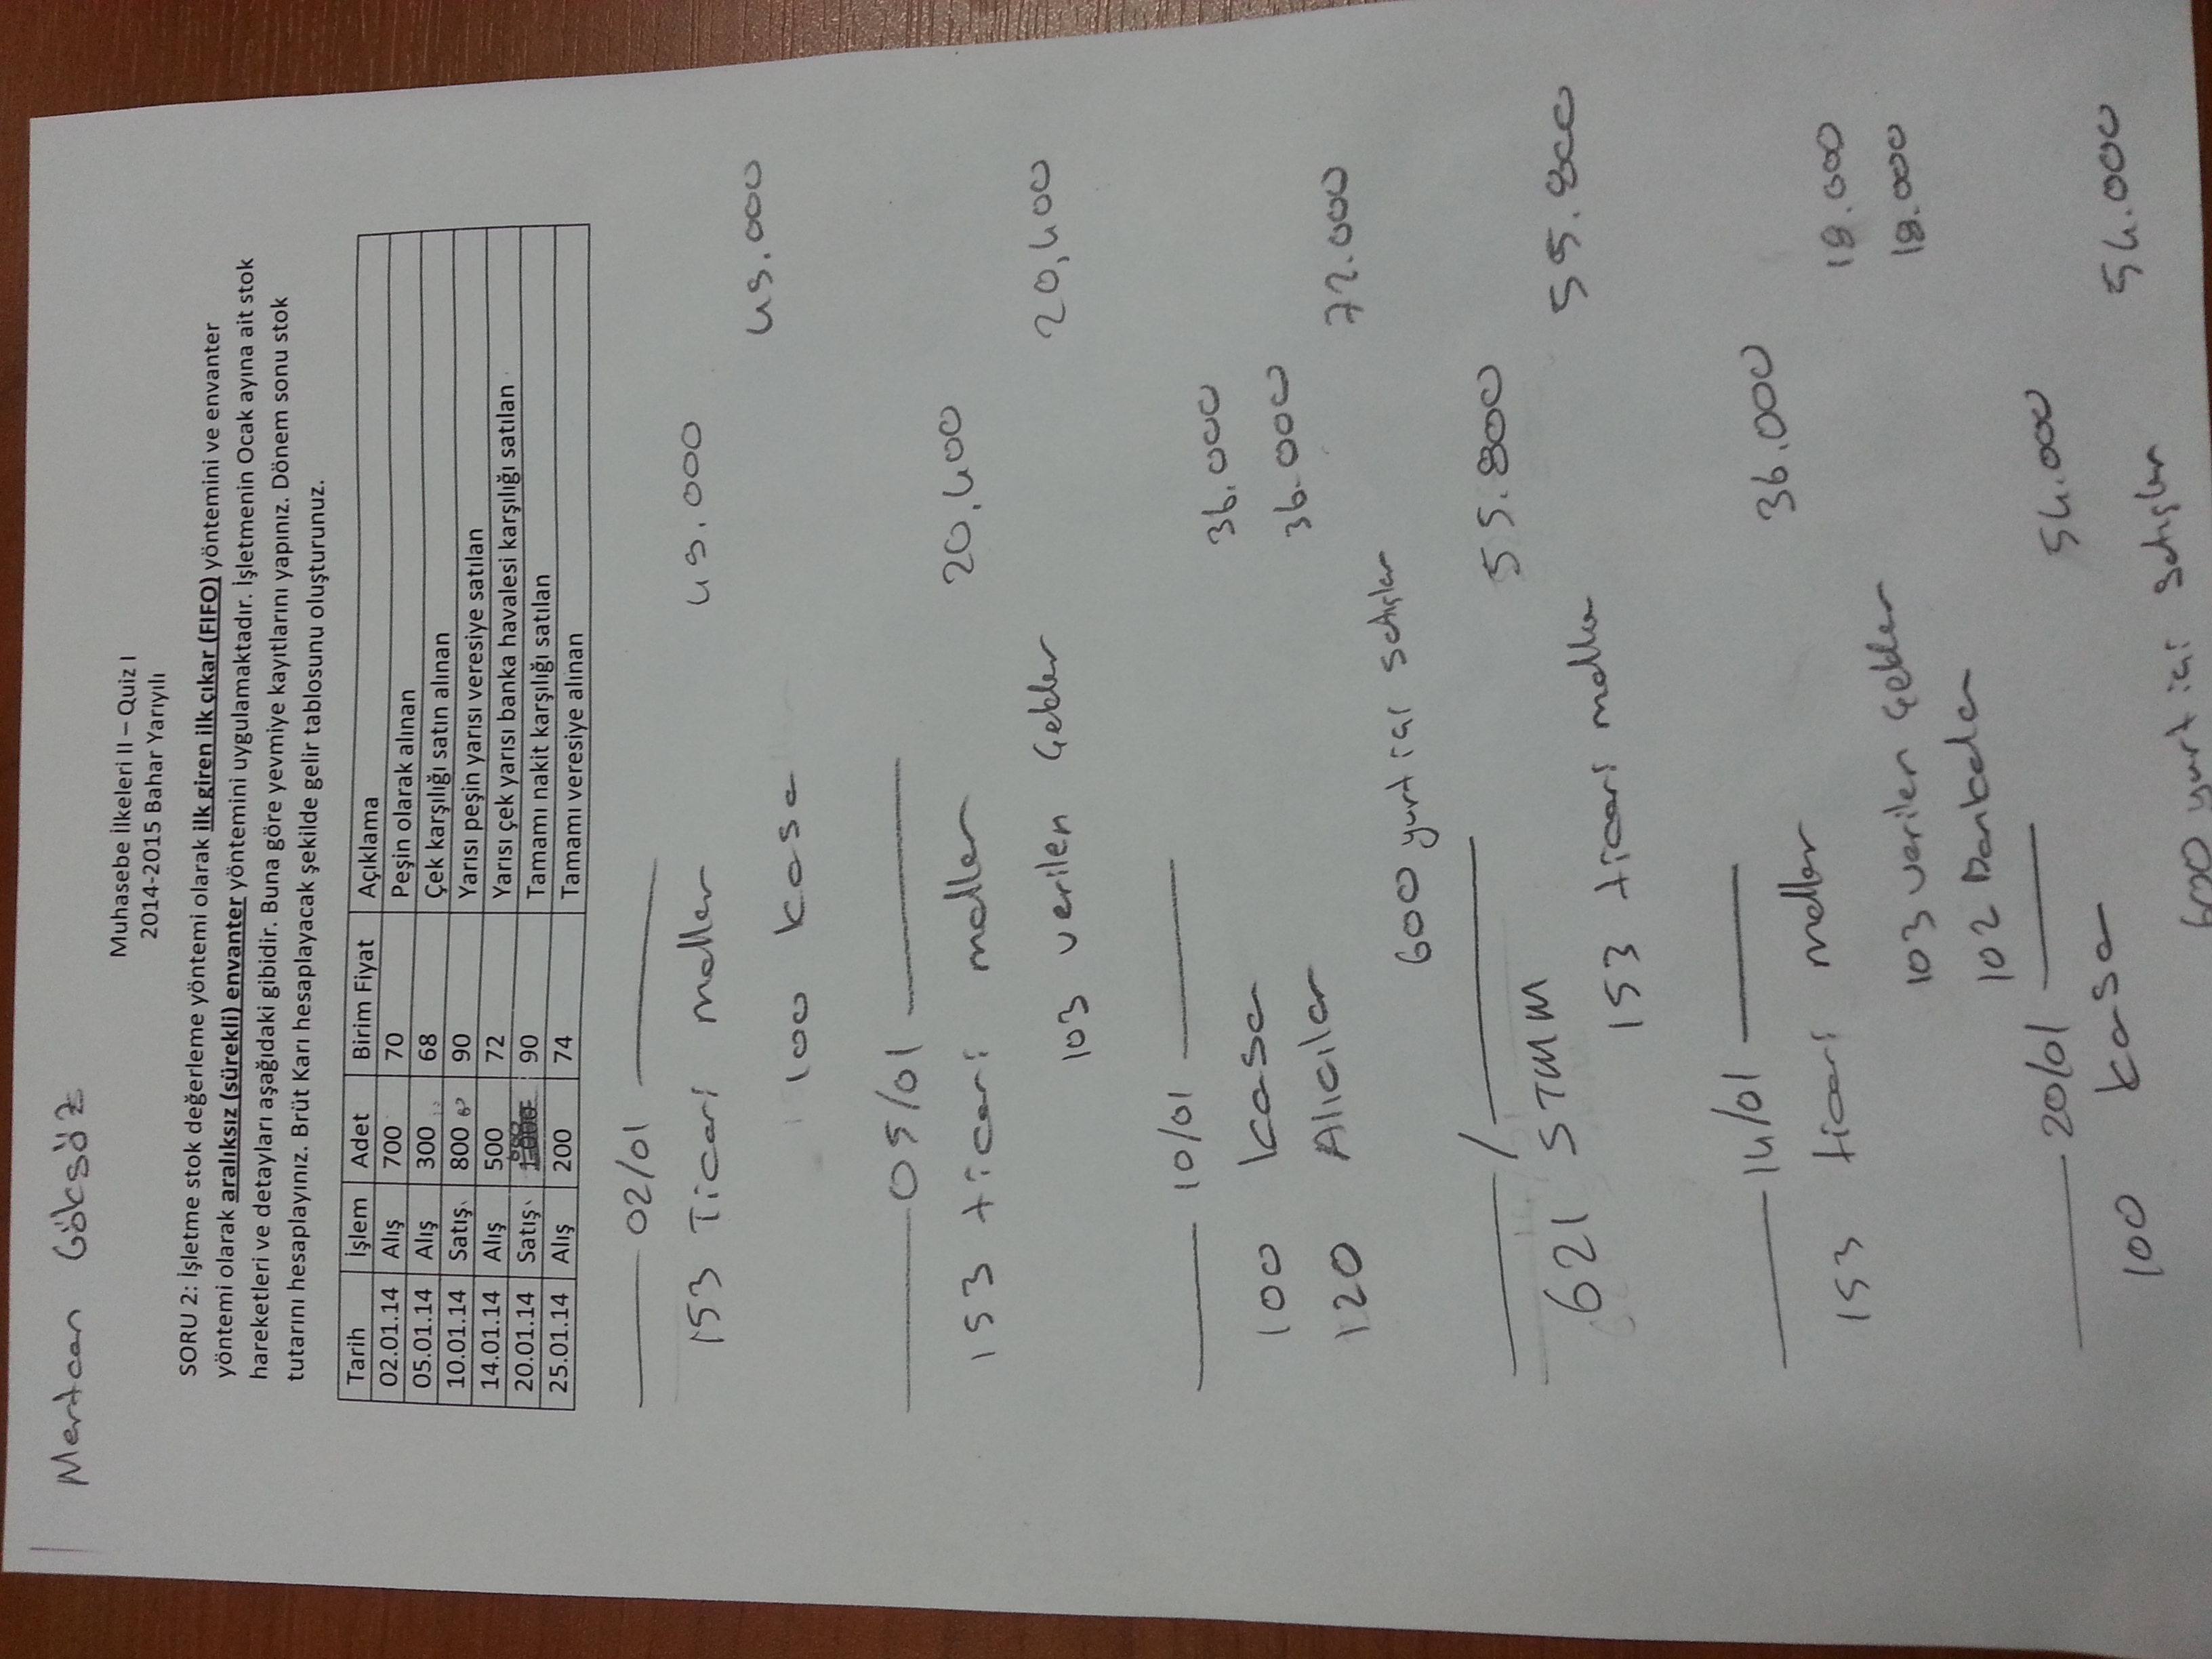 Mertcan Göksöz
Muhasebe İlkeleri II – Quiz I
2014-2015 Bahar Yarıyılı
SORU 2: İşletme stok değerleme yöntemi olarak ilk giren ilk çıkar (FIFO) yöntemini ve envanter
yöntemi olarak aralıksız (sürekli) envanter yöntemini uygulamaktadır. İşletmenin Ocak ayına ait stok
hareketleri ve detayları aşağıdaki gibidir. Buna göre yevmiye kayıtlarını yapınız. Dönem sonu stok
tutarını hesaplayınız. Brüt Karı hesaplayacak şekilde gelir tablosunu oluşturunuz.
Tarih İşlem Adet Birim Fiyat Açıklama
02.01.14 Alış 700 70 Peşin olarak alınan
05.01.14 Alış 300 68 Çek karşılığı satın alınan
10.01.14 Satış 800 90 Yarısı peşin yarısı veresiye satılan
14.01.14 Alış 500 72 Yarısı çek yarısı banka havalesi karşılığı satılan
600
20.01.14 Satış 1.000 90 Tamamı nakit karşılığı satılan
25.01.14 Alış 200 74 Tamamı veresiye alınan
02/01
153 Ticari mallar 49.000
100 kasa 49.000
05/01
153 ticari mallar 20,400
103 verilen çekler 20,400
10/01
100 kasa 36.000
120 Alıcılar 36.000
600 yurt içi satışlar 72.000
/
621 STMM 55.800
153 ticari mallar 55.800
14/01
153 ticari mallar 36.000
103 verilen çekler 18.000
102 Bankalar 18.000
20/01
100 kasa 54.000
600 yurt içi satışlar 54.000